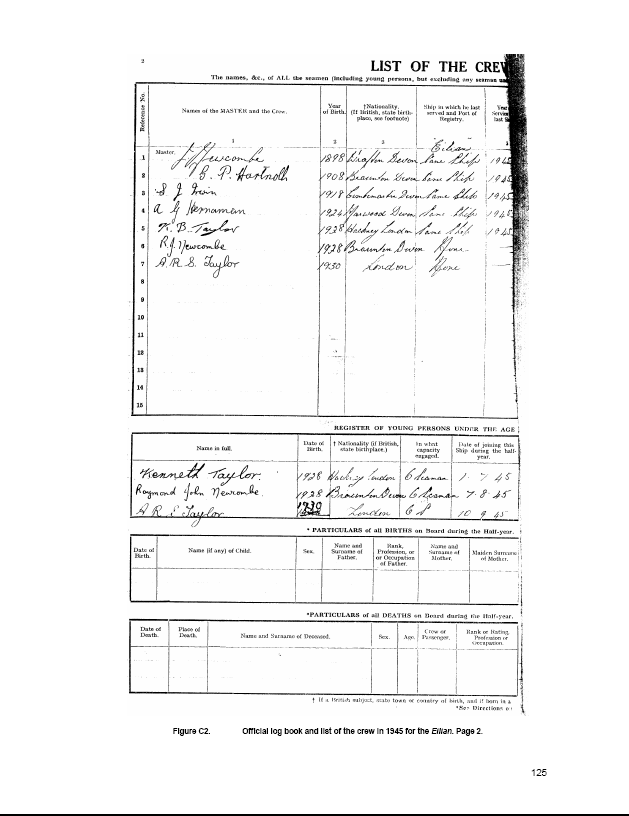 2
LIST OF THE CREW
The names, &c., of ALL the seamen (including young persons, but excluding any seaman
Reference No.
Names of the MASTER and the Crew.
Year of Birth.
†Nationality. (If British, state birth-place, see footnote)
Ship in which he last served and Port of Registry.
1 2 3
"Eilian"
1 Master. J Newcombe 1898 Devon Same Ship 1945
2 G. P. Hartnoll 1908 Braunton Devon Same Ship 1945
3 S J Irwin 1918 Devon Same Ship 1945
4 A G Hernaman 1924 Devon Same Ship 1945
5 K. B. Taylor 1928 Hackney London Same Ship 1945
6 R.J. Newcombe 1928 Braunton Devon None
7 A. R. S. Taylor 1930 London None
8
9
10
11
12
13
14
15
REGISTER OF YOUNG PERSONS UNDER THE AGE
Name in full.
Date of Birth.
† Nationality (if British, state birthplace.)
In what capacity engaged.
Date of joining this Ship during the half-year.
Kenneth Taylor. 1928 Hackney London 1. 7. 45
Raymond John Newcombe. 1928 Braunton Devon 7. 8. 45
A R S Taylor 1930 London 10 9 45
* PARTICULARS of all BIRTHS on Board during the Half-year.
Date of Birth.
Name (if any) of Child.
Sex.
Name and Surname of Father.
Rank, Profession, or or Occupation of Father.
Name and Surname of Mother.
Maiden Surname of Mother.
*PARTICULARS of all DEATHS on Board during the Half-year.
Date of Death.
Place of Death.
Name and Surname of Deceased.
Sex.
Age.
Crew or Passenger.
Rank or Rating, Profession or Occupation.
† If a British subject, state town or country of birth, and if born in a
*See Directions o
Figure C2. Official log book and list of the crew in 1945 for the Eilian. Page 2.
125